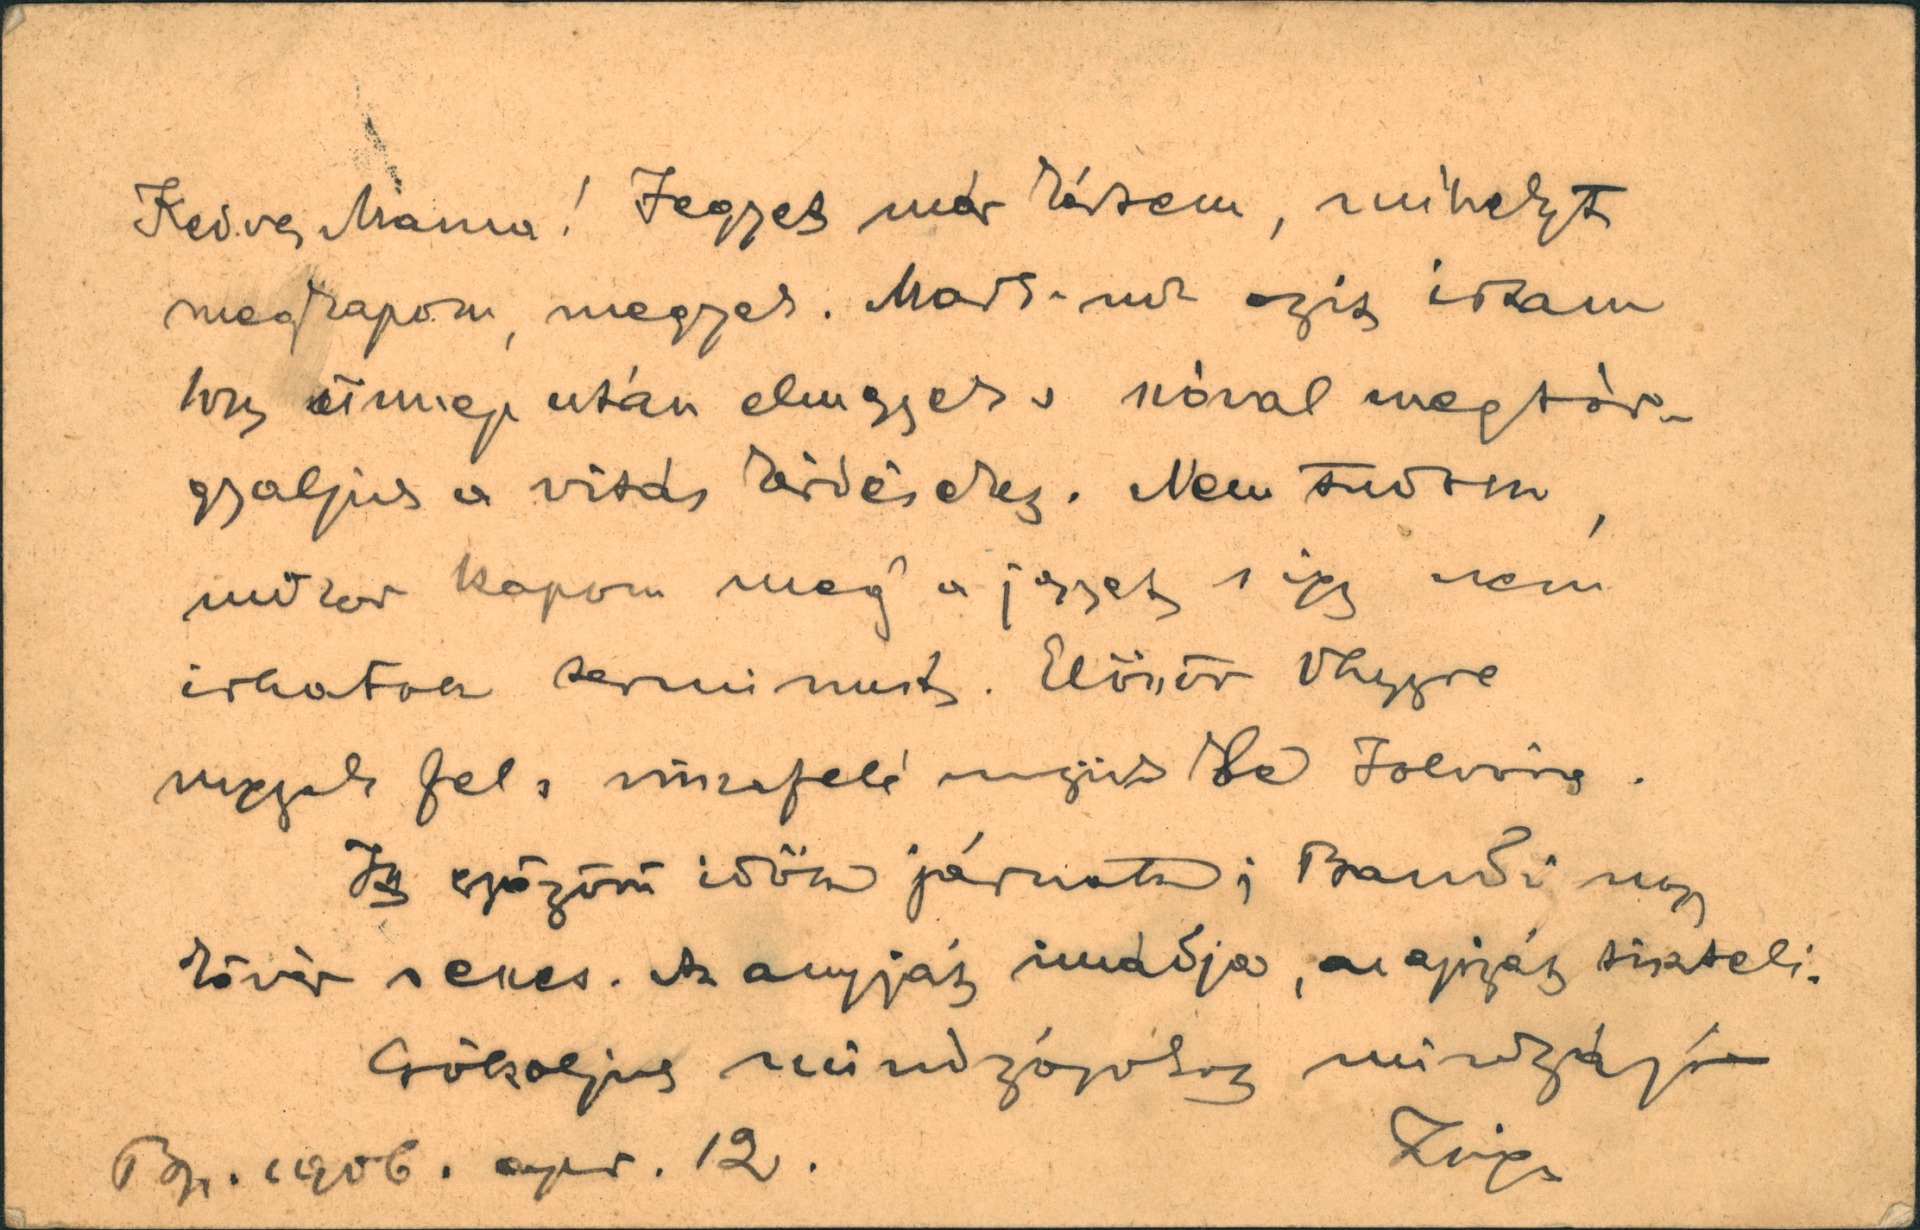 Kedves Mama! Jegyet már kértem, mihelyt
megkapom, megyek. Mark-nak azt írtam
hogy ünnep után elmegyek s szóval megtár-
gyaljuk a vitás kérdéseket. Nem tudom,
mikor kapom meg a jegyet s így nem
írhatok terminust. Először Vhegyre
megyek fel s visszafelé megyünk be Zolyomba.
Itt gyönyörű idők járnak; Bandi nagy
kövér s eleven. Az anyját imádja, az apját tiszteli.
Csókoljuk mindnyájukat mindnyájan
Bp. 1906. apr. 12.